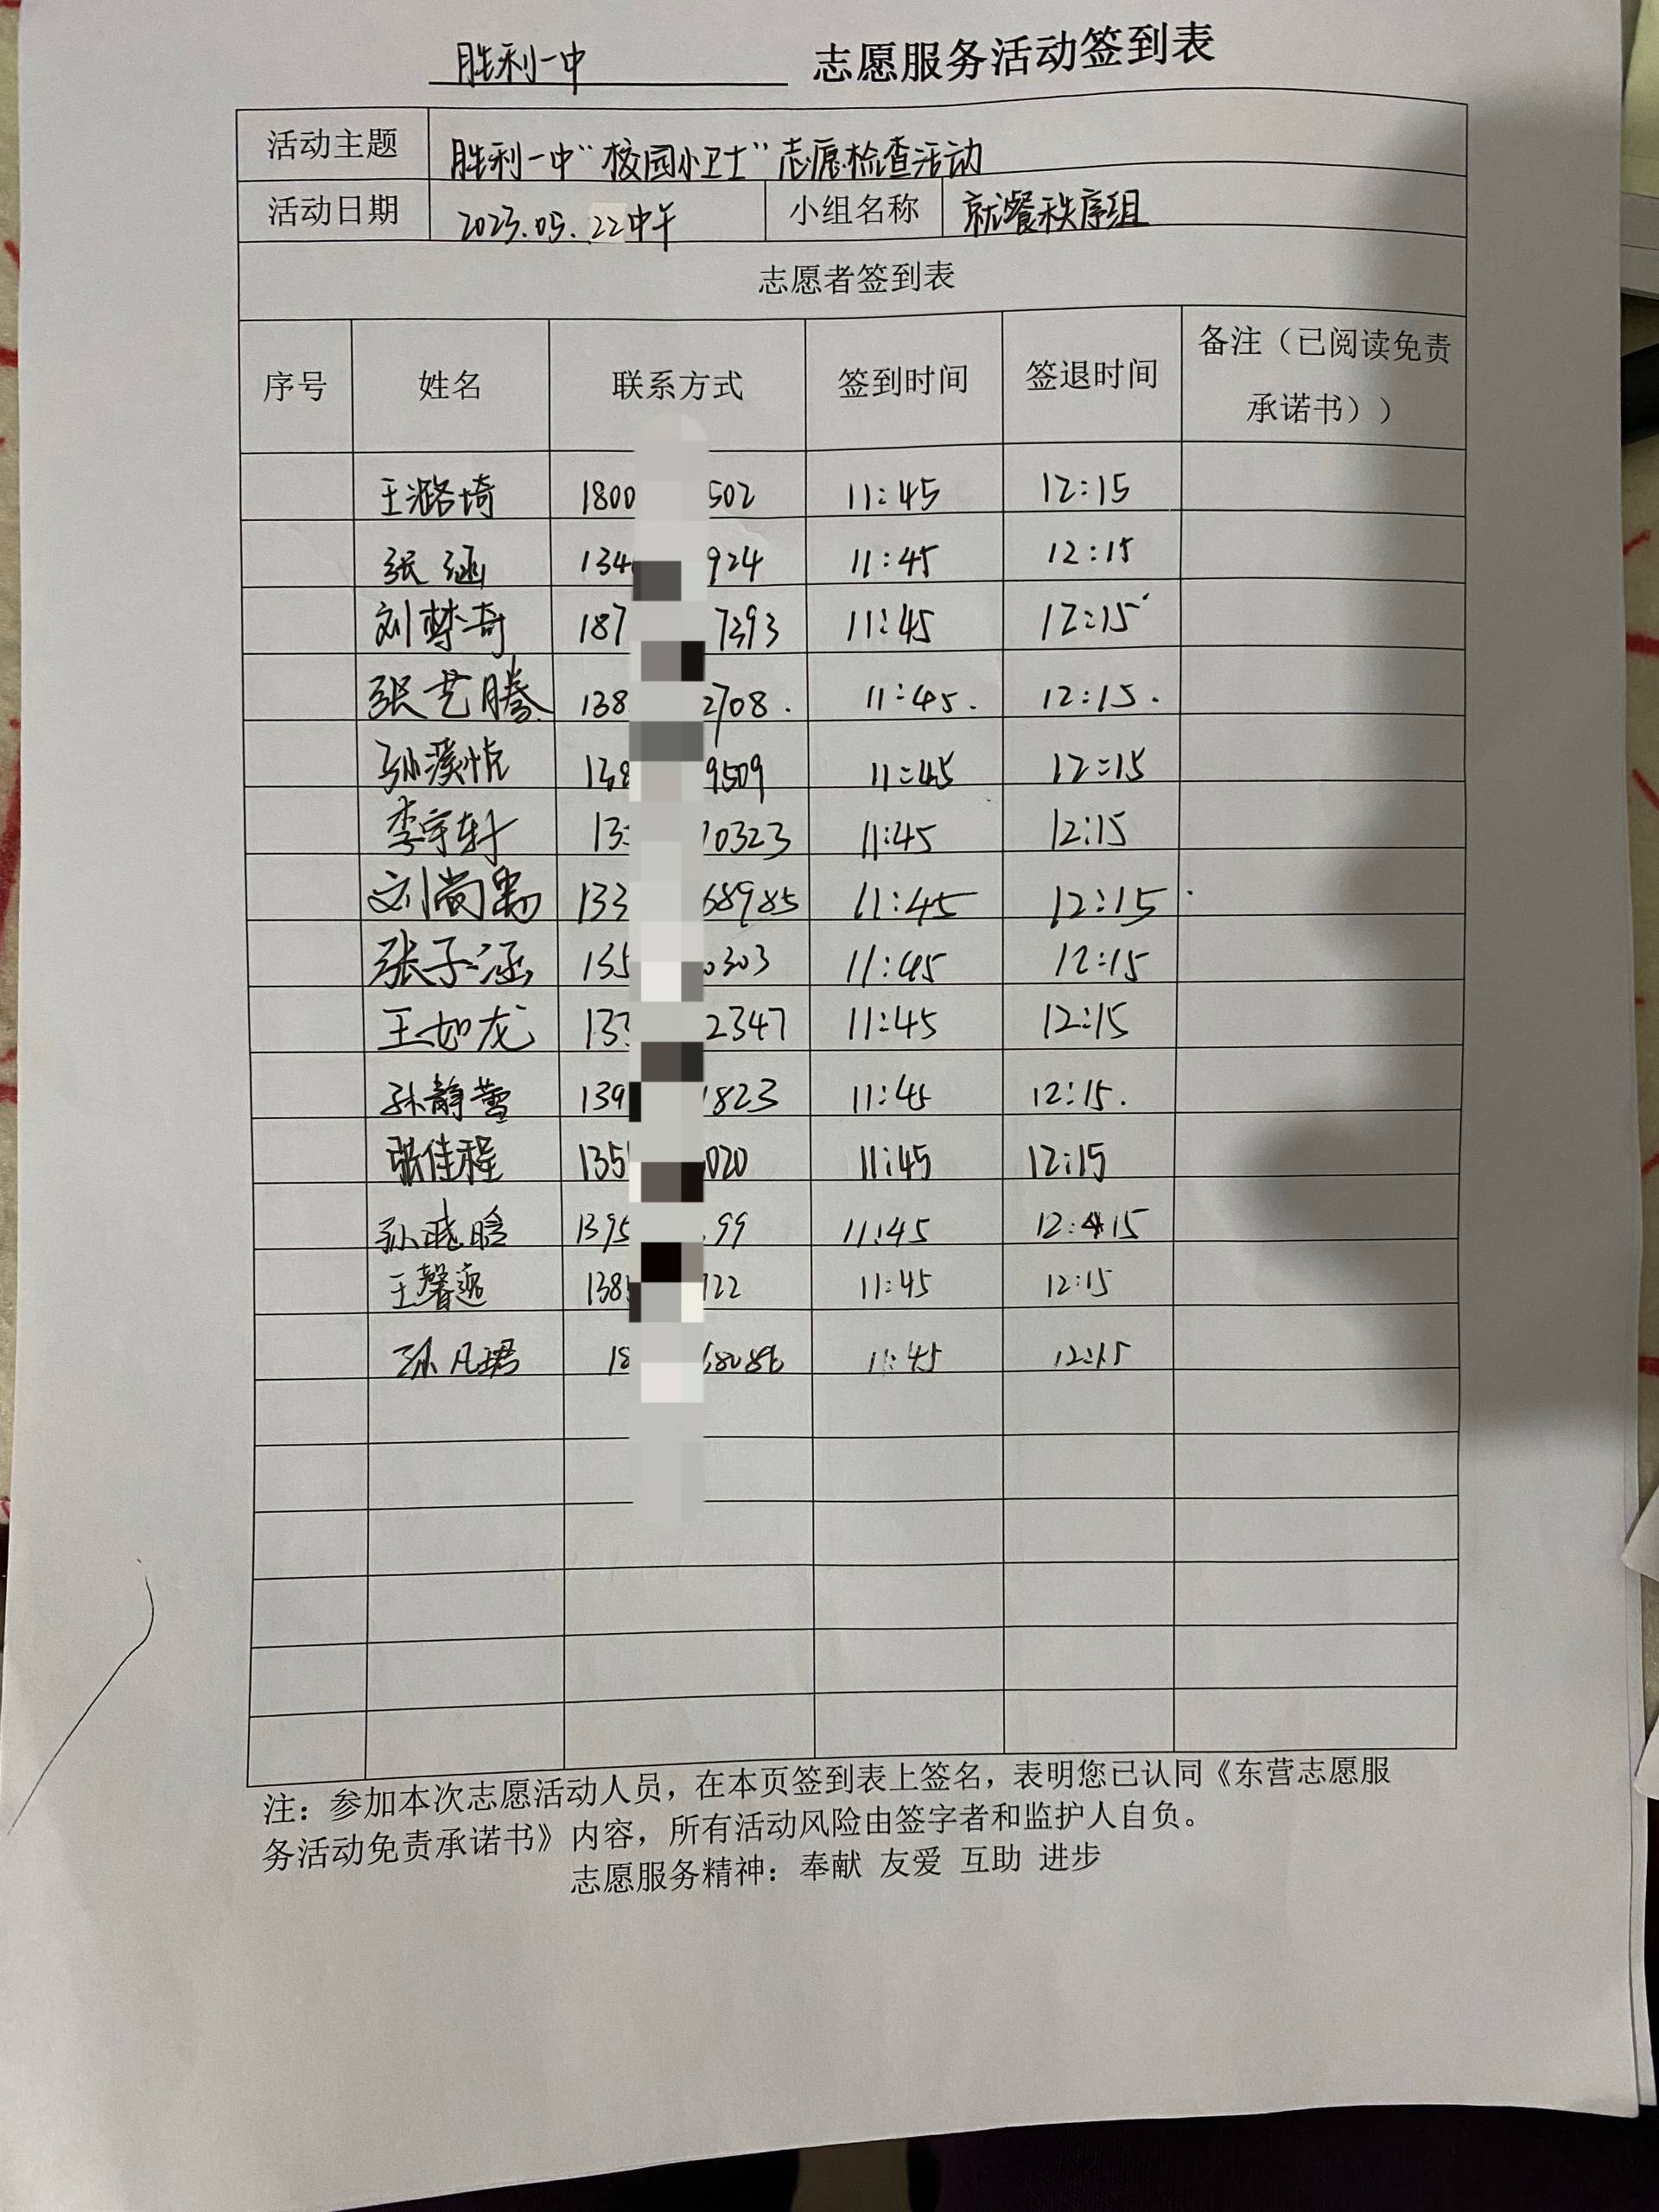 胜利一中 志愿服务活动签到表
活动主题 胜利一中“校园小卫士”志愿检查活动
活动日期 2023.05.22中午 小组名称 就餐秩序组
志愿者签到表
序号 姓名 联系方式 签到时间 签退时间 备注（已阅读免责承诺书））
王潞埼 1800 502 11:45 12:15
张涵 134 924 11:45 12:15
刘梦奇 187 7393 11:45 12:15
张艺腾 138 2708. 11:45. 12:15.
孙溪悦 138 9509 11:45 12:15
李宇轩 13 10323 11:45 12:15
刘尚禹 133 68985 11:45 12:15
张子涵 135 0303 11:45 12:15
王如龙 133 2347 11:45 12:15
孙静蕾 139 1823 11:45 12:15.
张佳程 135 020 11:45 12:15
孙晓晗 1395 99 11:45 12:15
王馨逸 138 722 11:45 12:15
孙凡珺 18 68086 11:45 12:15
注：参加本次志愿活动人员，在本页签到表上签名，表明您已认同《东营志愿服
务活动免责承诺书》内容，所有活动风险由签字者和监护人自负。
志愿服务精神：奉献 友爱 互助 进步